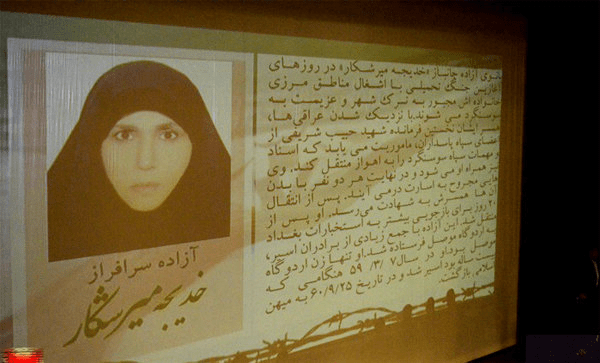 بانوی آزاده جانباز «خدیجه میرشکار» در روزهای
آغازین جنگ تحمیلی با اشغال مناطق مرزی
خانواده اش مجبور به ترک شهر و عزیمت به
سوسنگرد می شوند. با نزدیک شدن عراقی‌ها،
همسر ایشان نخستین فرمانده شهید حبیب شریفی از
اعضای سپاه پاسداران، ماموریت می یابد که اسناد
و مهمات سپاه سوسنگرد را به اهواز منتقل کند. وی
نیز همراه او می شود و در نهایت هر دو نفر با بدن
هایی مجروح به اسارت درمی آیند. پس از انتقال
آن ها همسرش به شهادت می‌رسد. او پس از
۲۰ روز برای بازجویی بیشتر به استخبارات بغداد
منتقل شد. این آزاده با جمع زیادی از برادران اسیر،
به اردوگاه موصل فرستاده شد. او تنها زن اردوگاه
موصل بود. او در سال ۷ /۳/ ۵۹ هنگامی که
بیست ساله بود اسیر شد و در تاریخ ۶۰/۹/۲۵ به میهن
اسلامی بازگشت.
آزاده سرافراز
خدیجه میرشکار